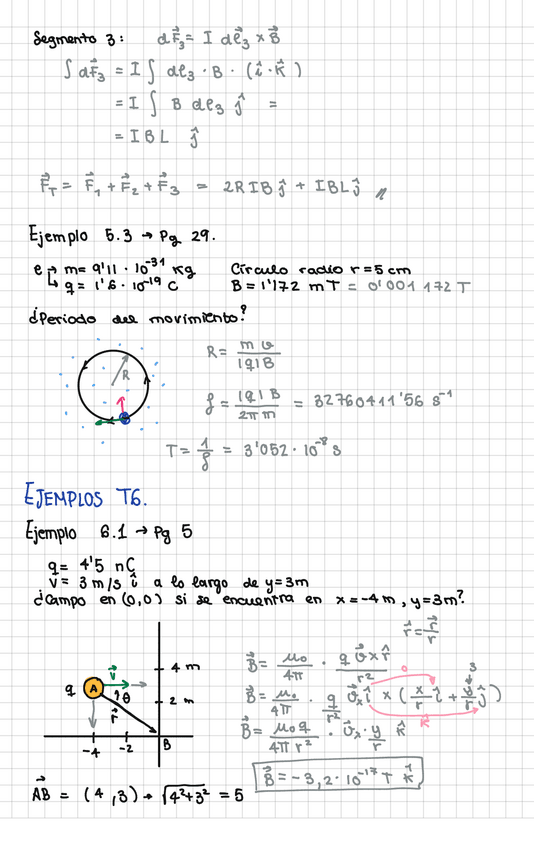 Segmento 3: dF⃗₃ = I dℓ⃗₃ × B⃗
∫ dF⃗₃ = I ∫ dℓ₃ · B · (î · k̂)
= I ∫ B dℓ₃ ĵ =
= I B L ĵ
F⃗_T = F⃗₁ + F⃗₂ + F⃗₃ = 2RIB ĵ + IBL ĵ //
Ejemplo 5.3 → Pg 29.
e → m = 9'11 · 10⁻³¹ kg Círculo radio r = 5 cm
↳ q = 1'6 · 10⁻¹⁹ C B = 1'172 mT = 0'001 172 T
¿Periodo del movimiento?
R
R = m v / |q| B
f = |q| B / 2π m = 32760411'56 s⁻¹
T = 1/f = 3'052 · 10⁻⁸ s
EJEMPLOS T6.
Ejemplo 6.1 → Pg 5
q = 4'5 nC
v = 3 m/s î a lo largo de y = 3m
¿Campo en (0,0) si se encuentra en x = -4 m, y = 3m?
r̂ = r⃗/r
B⃗ = μ₀/4π · q v⃗ x r̂ / r²
0 3
B⃗ = μ₀/4π · q/r² v⃗ₓ î × (x/r î + y/r ĵ)
k̂
B⃗ = μ₀ q / 4π r² · v⃗ₓ · y/r k̂
B⃗ = -3,2 · 10⁻¹⁷ T k̂
4 m
q A v⃗
θ
2 m
r⃗
B
-4 -2
AB⃗ = (4, 3) → √4²+3² = 5